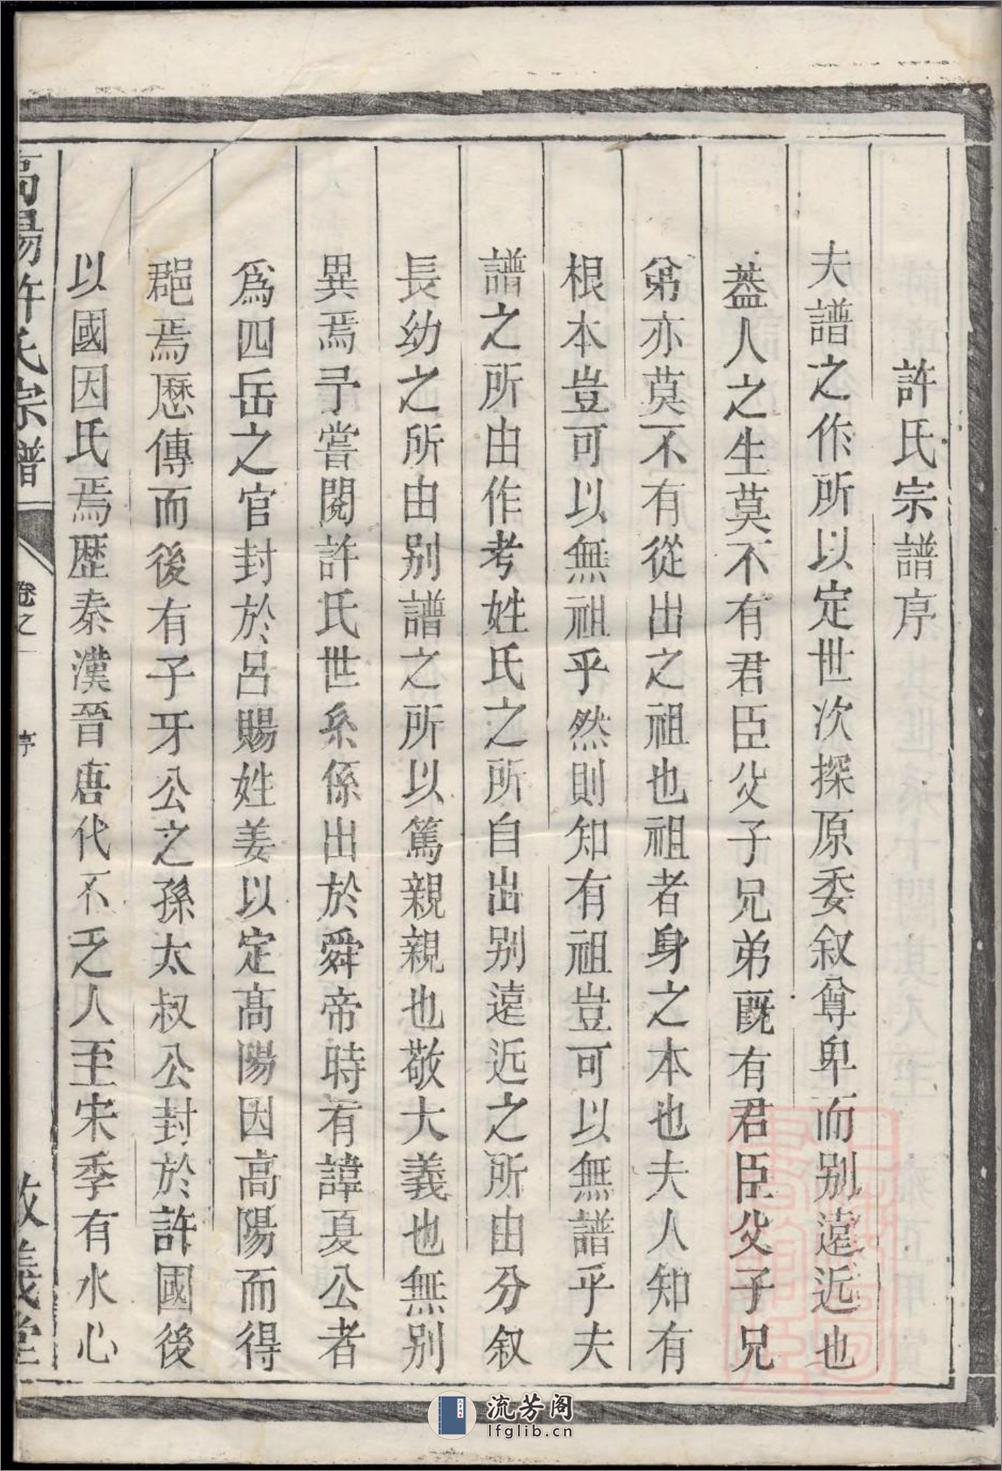 許氏宗譜序
夫譜之作所以定世次探原委叙尊卑而别遠近也
葢人之生莫不有君臣父子兄弟既有君臣父子兄
弟亦莫不有從出之祖也祖者身之本也夫人知有
根本豈可以無祖乎然則知有祖豈可以無譜乎夫
譜之所由作考姓氏之所自出别遠近之所由分叙
長幼之所由别譜之所以篤親親也敬大義也無别
異焉予嘗閱許氏世系係出於舜帝時有諱夏公者
爲四岳之官封於呂賜姓姜以定高陽因高陽而得
郡焉歷傳而後有子牙公之孫太叔公封於許國後
以國因氏焉歷秦漢晉唐代不乏人至宋季有水心
高陽許氏宗譜 卷之一 序 敦義堂
流芳阁
lfglib.cn